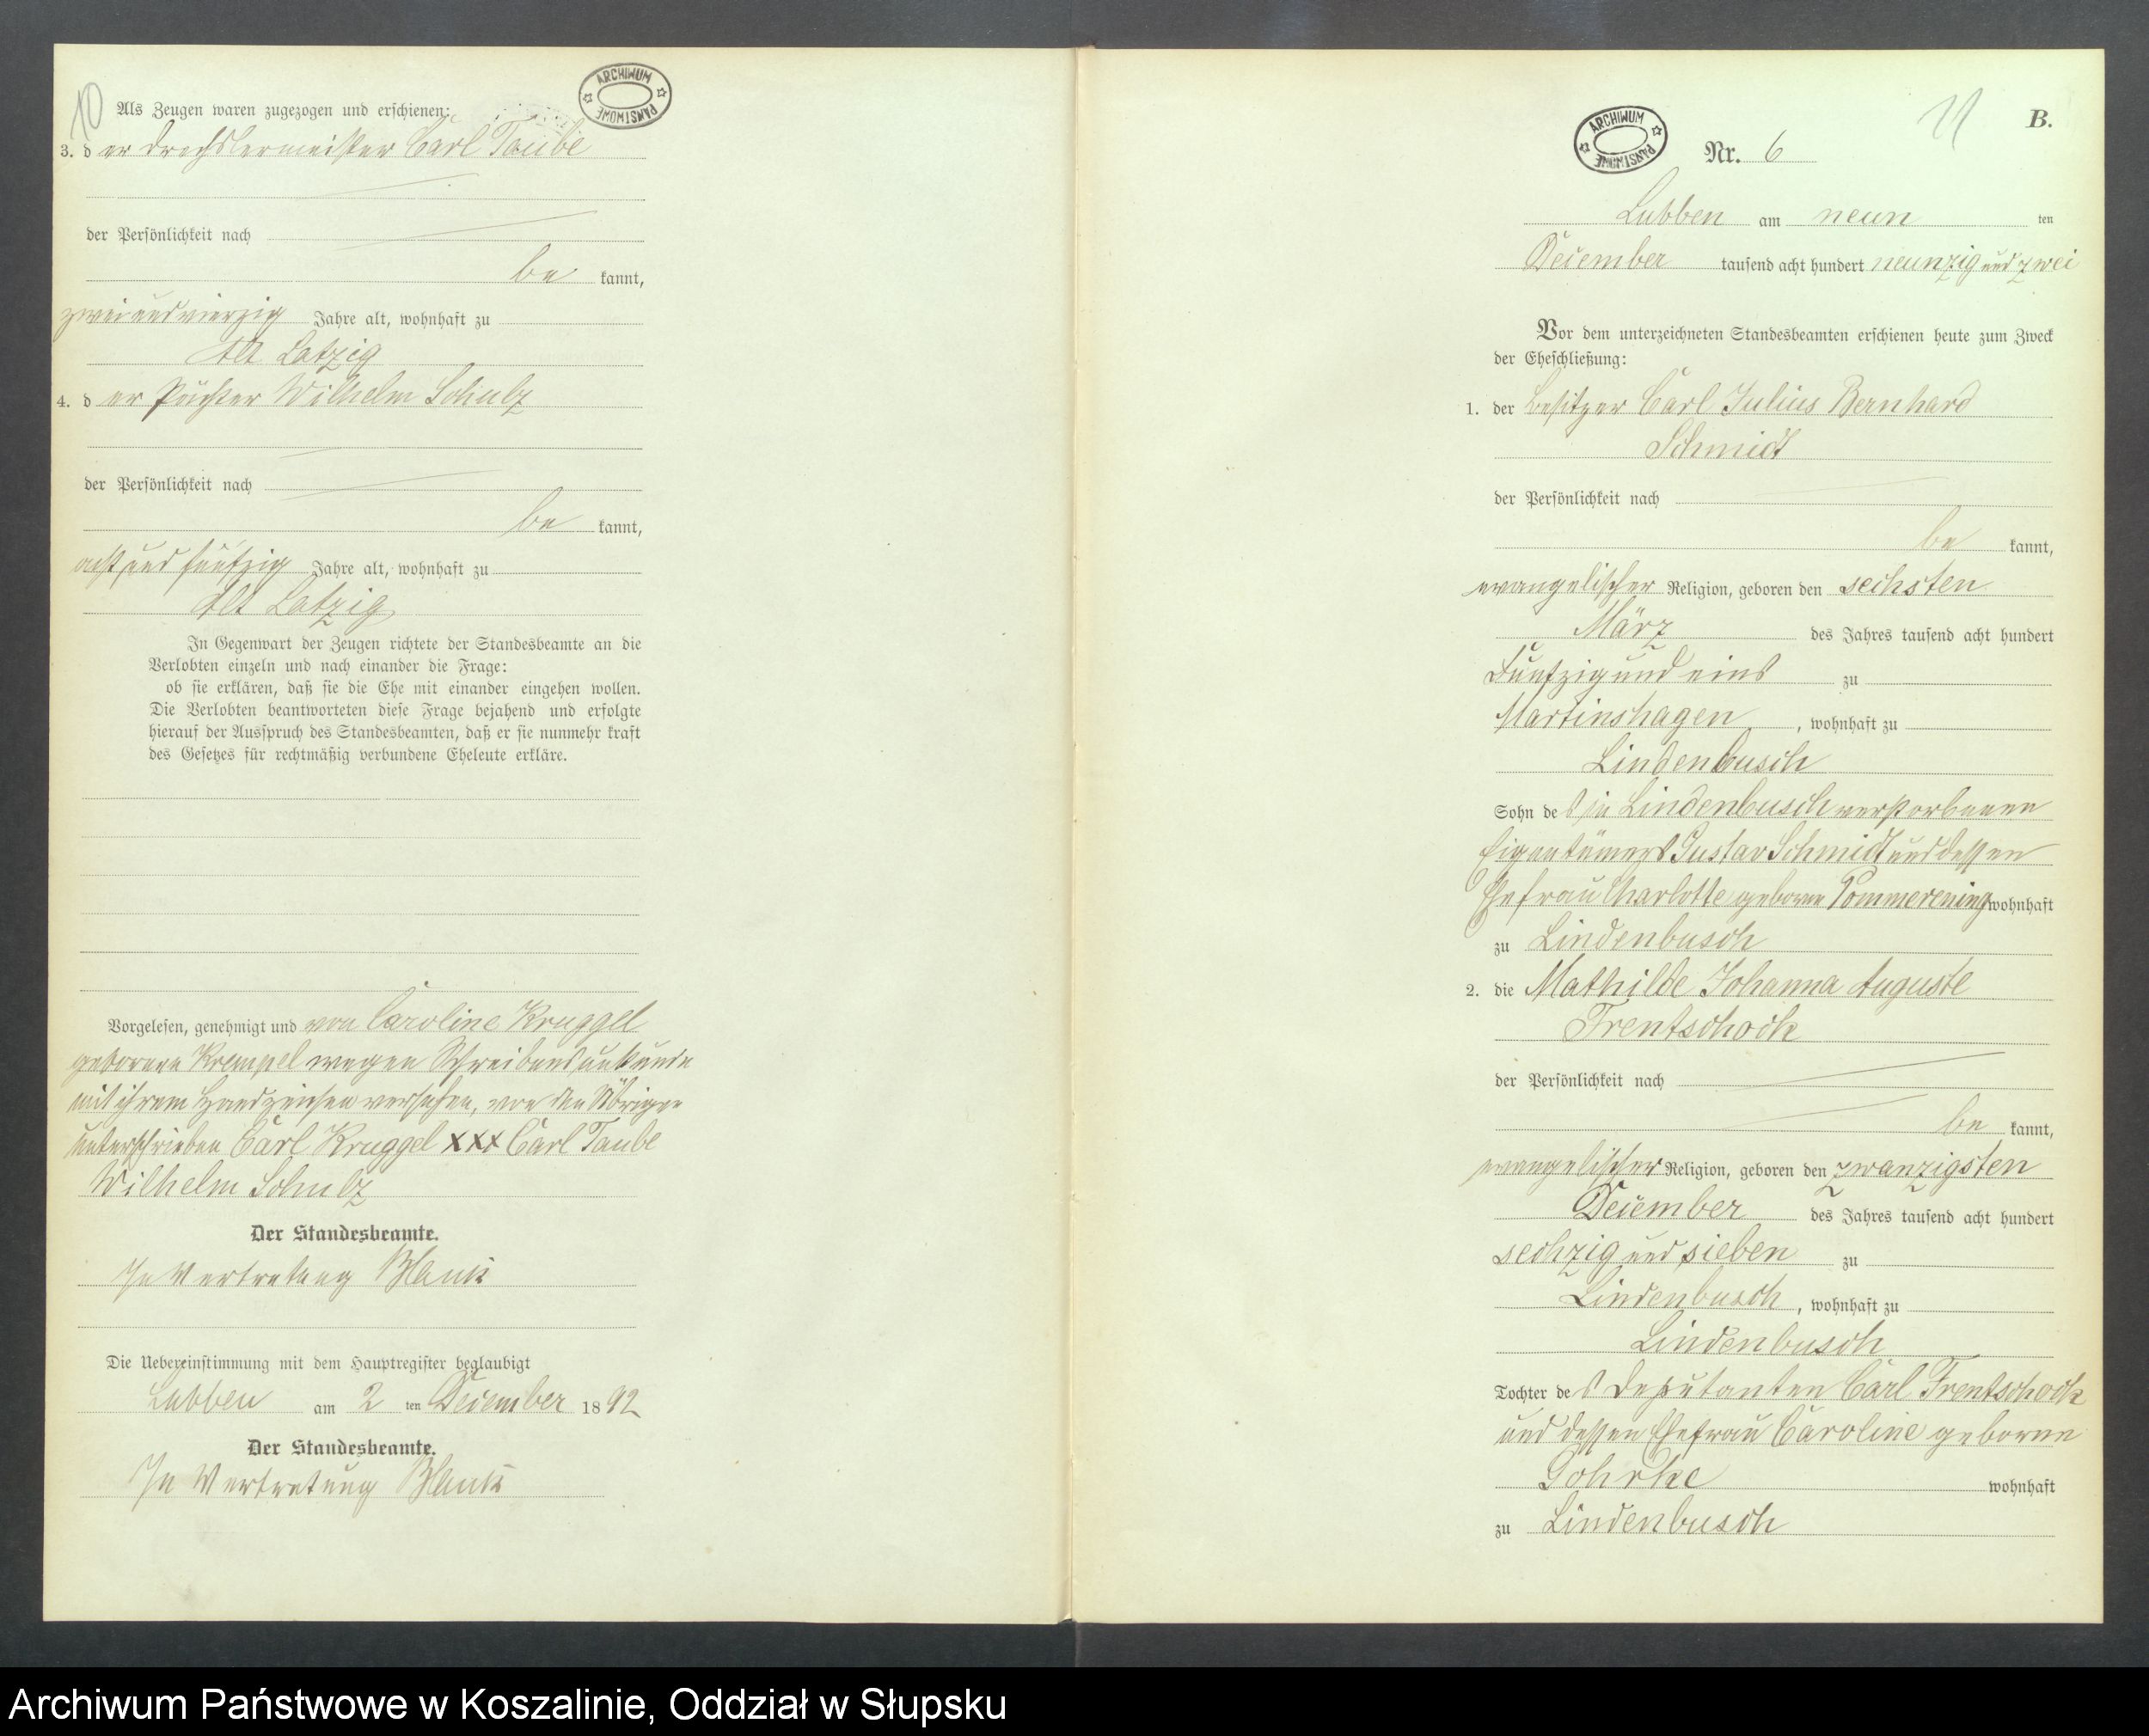 10
Als Zeugen waren zugezogen und erschienen:
ARCHIWUM PAŃSTWOWE
3. der Drechslermeister Carl Taube
der Persönlichkeit nach
be kannt,
zwei und vierzig Jahre alt, wohnhaft zu
Alt Latzig
4. der Pächter Wilhelm Schulz
der Persönlichkeit nach
be kannt,
acht und fünfzig Jahre alt, wohnhaft zu
Alt Latzig
In Gegenwart der Zeugen richtete der Standesbeamte an die
Verlobten einzeln und nach einander die Frage:
ob sie erklären, daß sie die Ehe mit einander eingehen wollen.
Die Verlobten beantworteten diese Frage bejahend und erfolgte
hierauf der Ausspruch des Standesbeamten, daß er sie nunmehr kraft
des Gesetzes für rechtmäßig verbundene Eheleute erkläre.
Vorgelesen, genehmigt und von Caroline Kruggel
geborene Krempel wegen Schreibensunkunde
mit ihrem Handzeichen versehen, von den Übrigen
unterschrieben Carl Kruggel xxx Carl Taube
Wilhelm Schulz
Der Standesbeamte.
In Vertretung Blank
Die Uebereinstimmung mit dem Hauptregister beglaubigt
Lubben am 2 ten December 1892
Der Standesbeamte.
In Vertretung Blank
11
B.
ARCHIWUM PAŃSTWOWE
Nr. 6
Lubben am neun ten
December tausend acht hundert neunzig und zwei
Vor dem unterzeichneten Standesbeamten erschienen heute zum Zweck
der Eheschließung:
1. der Besitzer Carl Julius Bernhard
Schmidt
der Persönlichkeit nach
be kannt,
evangelischer Religion, geboren den sechsten
März des Jahres tausend acht hundert
Fünfzig und eins zu
Martinshagen, wohnhaft zu
Lindenbusch
Sohn des in Lindenbusch verstorbenen
Eigentümers Gustav Schmidt und dessen
Ehefrau Charlotte geborne Pommerening wohnhaft
zu Lindenbusch
2. die Mathilde Johanna Auguste
Frentschock
der Persönlichkeit nach
be kannt,
evangelischer Religion, geboren den zwanzigsten
December des Jahres tausend acht hundert
sechzig und sieben zu
Lindenbusch, wohnhaft zu
Lindenbusch
Tochter des Deputanten Carl Frentschock
und dessen Ehefrau Caroline geborne
Gohrke wohnhaft
zu Lindenbusch
Archiwum Państwowe w Koszalinie, Oddział w Słupsku